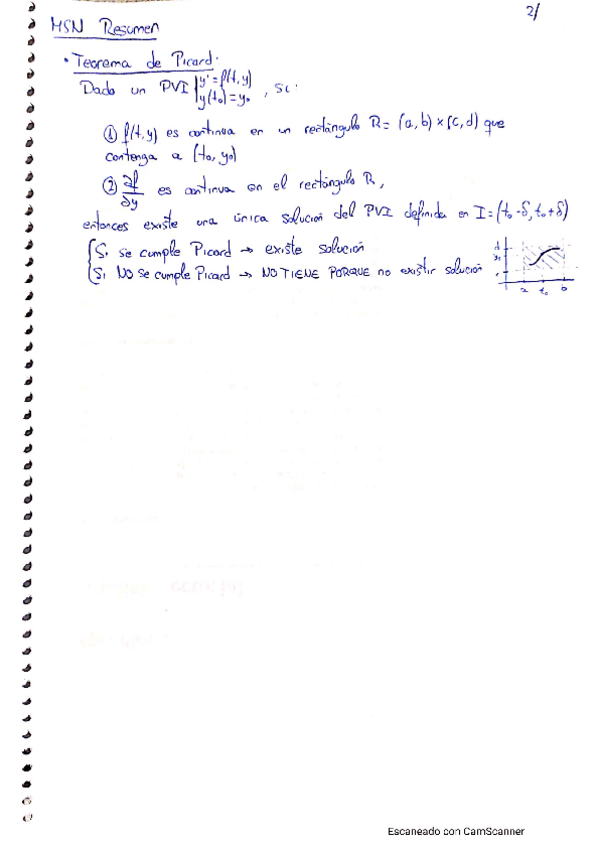 2/
MSN Resumen
• Teorema de Picard.
Dado un PVI { y' = f(t,y)
y(t₀) = y₀ , si:
① f(t,y) es continua en un rectángulo R = (a,b) × (c,d) que
contenga a (t₀, y₀)
② ∂f/∂y es continua en el rectángulo R,
entonces existe una única solución del PVI definida en I = (t₀-δ, t₀+δ)
{ Si se cumple Picard → existe solución
Si NO se cumple Picard → NO TIENE PORQUE no existir solución
d
y₀
a t₀ b
Escaneado con CamScanner